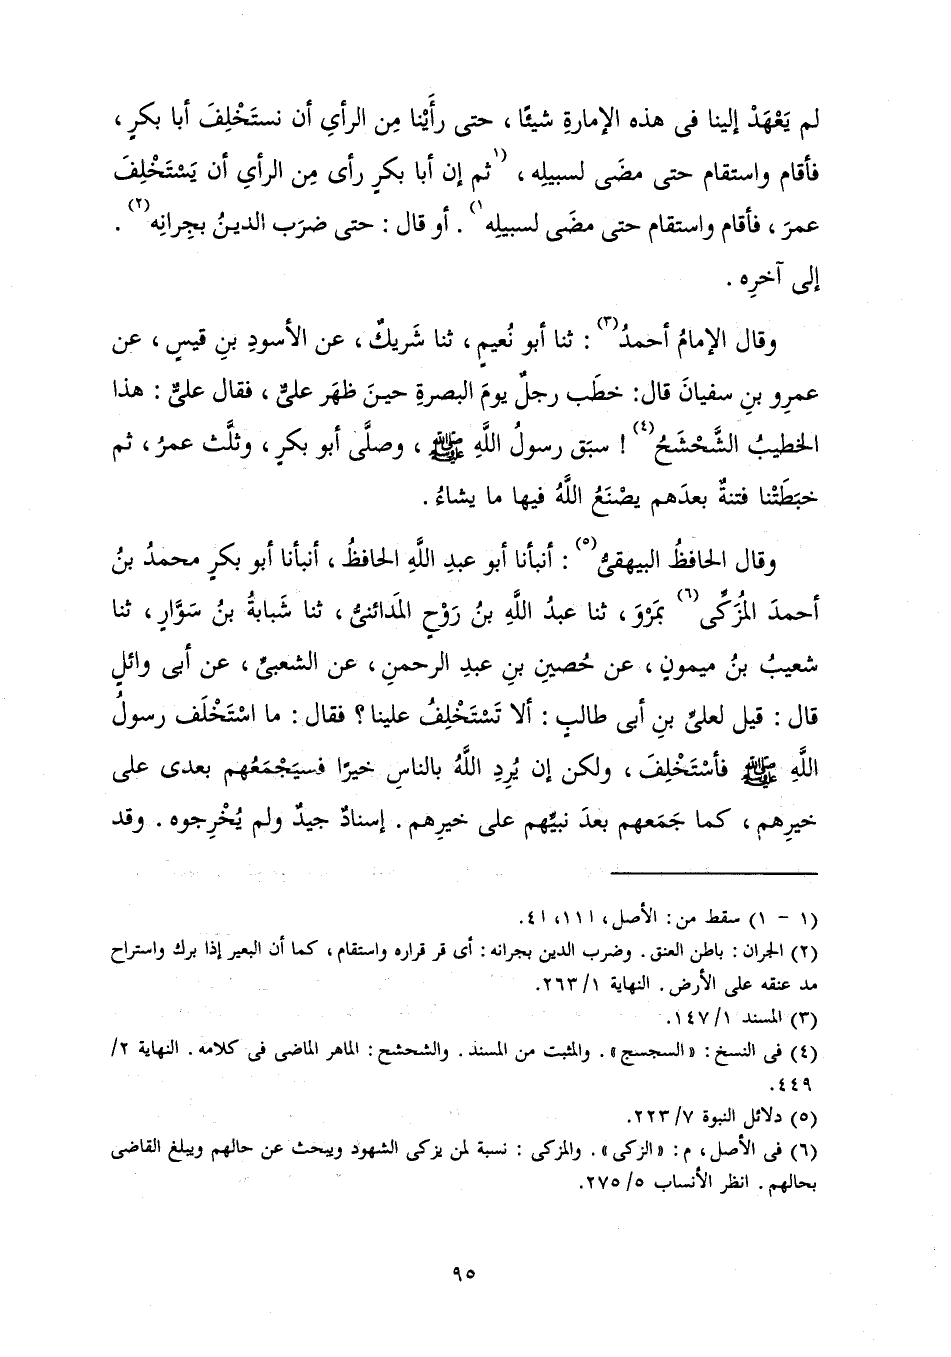 لم يَعْهَدْ إلينا فى هذه الإمارةِ شيئًا ، حتى رأَيْنا مِن الرأيِ أن نستَخْلِفَ أبا بكرٍ ،
فأقام واستقام حتى مضَى لسبيلِه ، (١ثم إن أبا بكرٍ رأى مِن الرأيِ أن يَسْتَخْلِفَ
عمرَ ، فأقام واستقام حتى مضَى لسبيلِه١) . أو قال : حتى ضرَب الدينُ بجِرانِه(٢) .
إلى آخرِه .
وقال الإمامُ أحمدُ(٣) : ثنا أبو نُعيمٍ ، ثنا شَريكٌ ، عن الأسودِ بنِ قيسٍ ، عن
عمرِو بنِ سفيانَ قال: خطَب رجلٌ يومَ البصرةِ حينَ ظهَر علىٌّ ، فقال علىٌّ : هذا
الخطيبُ الشَّحْشَحُ(٤) ! سبَق رسولُ اللَّهِ ﷺ ، وصلَّى أبو بكرٍ ، وثلَّث عمرُ ، ثم
خبَطَتْنا فتنةٌ بعدَهم يصْنَعُ اللَّهُ فيها ما يشاءُ .
وقال الحافظُ البيهقىُّ(٥) : أنبأنا أبو عبدِ اللَّهِ الحافظُ ، أنبأنا أبو بكرٍ محمدُ بنُ
أحمدَ المُزَكِّى(٦) بمَرْوَ ، ثنا عبدُ اللَّهِ بنُ رَوْحٍ المَدائنىُّ ، ثنا شَبابةُ بنُ سَوَّارٍ ، ثنا
شعيبُ بنُ ميمونٍ ، عن حُصينِ بنِ عبدِ الرحمنِ ، عن الشعبىِّ ، عن أبى وائلٍ
قال : قيل لعلىِّ بنِ أبى طالبٍ : ألا تَسْتَخْلِفُ علينا ؟ فقال : ما اسْتَخْلَف رسولُ
اللَّهِ ﷺ فأسْتَخْلِفَ ، ولكن إن يُرِدِ اللَّهُ بالناسِ خيرًا فسيَجْمَعُهم بعدى على
خيرِهم ، كما جَمَعهم بعدَ نبيِّهم على خيرِهم . إسنادٌ جيدٌ ولم يُخْرِجوه . وقد
(١ - ١) سقط من : الأصل ، ١١١، ٤١.
(٢) الجران : باطن العنق . وضرب الدين بجرانه : أى قر قراره واستقام ، كما أن البعير إذا برك واستراح
مد عنقه على الأرض . النهاية ١/ ٢٦٣.
(٣) المسند ١/ ١٤٧.
(٤) فى النسخ : «السجسج» . والمثبت من المسند . والشحشح : الماهر الماضى فى كلامه . النهاية ٢/
٤٤٩.
(٥) دلائل النبوة ٧/ ٢٢٣.
(٦) فى الأصل ، م : «الزكى» . والمزكى : نسبة لمن يزكى الشهود ويبحث عن حالهم ويبلغ القاضى
بحالهم . انظر الأنساب ٥/ ٢٧٥.
٩٥